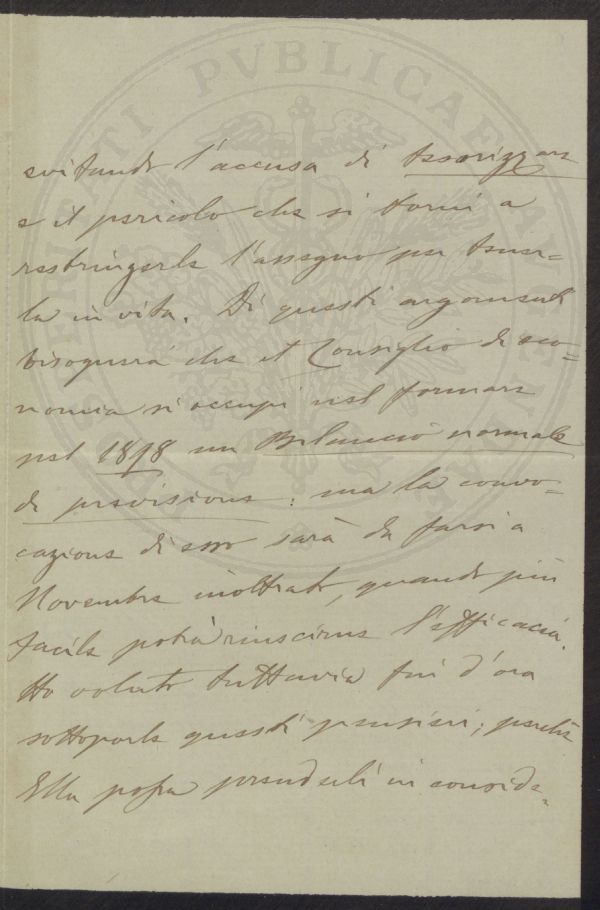 evitando l'accusa di tesorizzare
e il pericolo che si torni a
restringerle l'assegno per tener=
la in vita. Di questi argomenti
bisognerà che il Consiglio di eco=
nomia si occupi nel formare
pel 1898 un Bilancio normale
di previsione: ma la convo=
cazione di esso sarà da farsi a
Novembre inoltrato, quando più
facile potrà riuscirne l'efficacia.
Ho voluto tuttavia fin d'ora
sottoporle questi pensieri; perchè
Ella possa prenderli in conside=